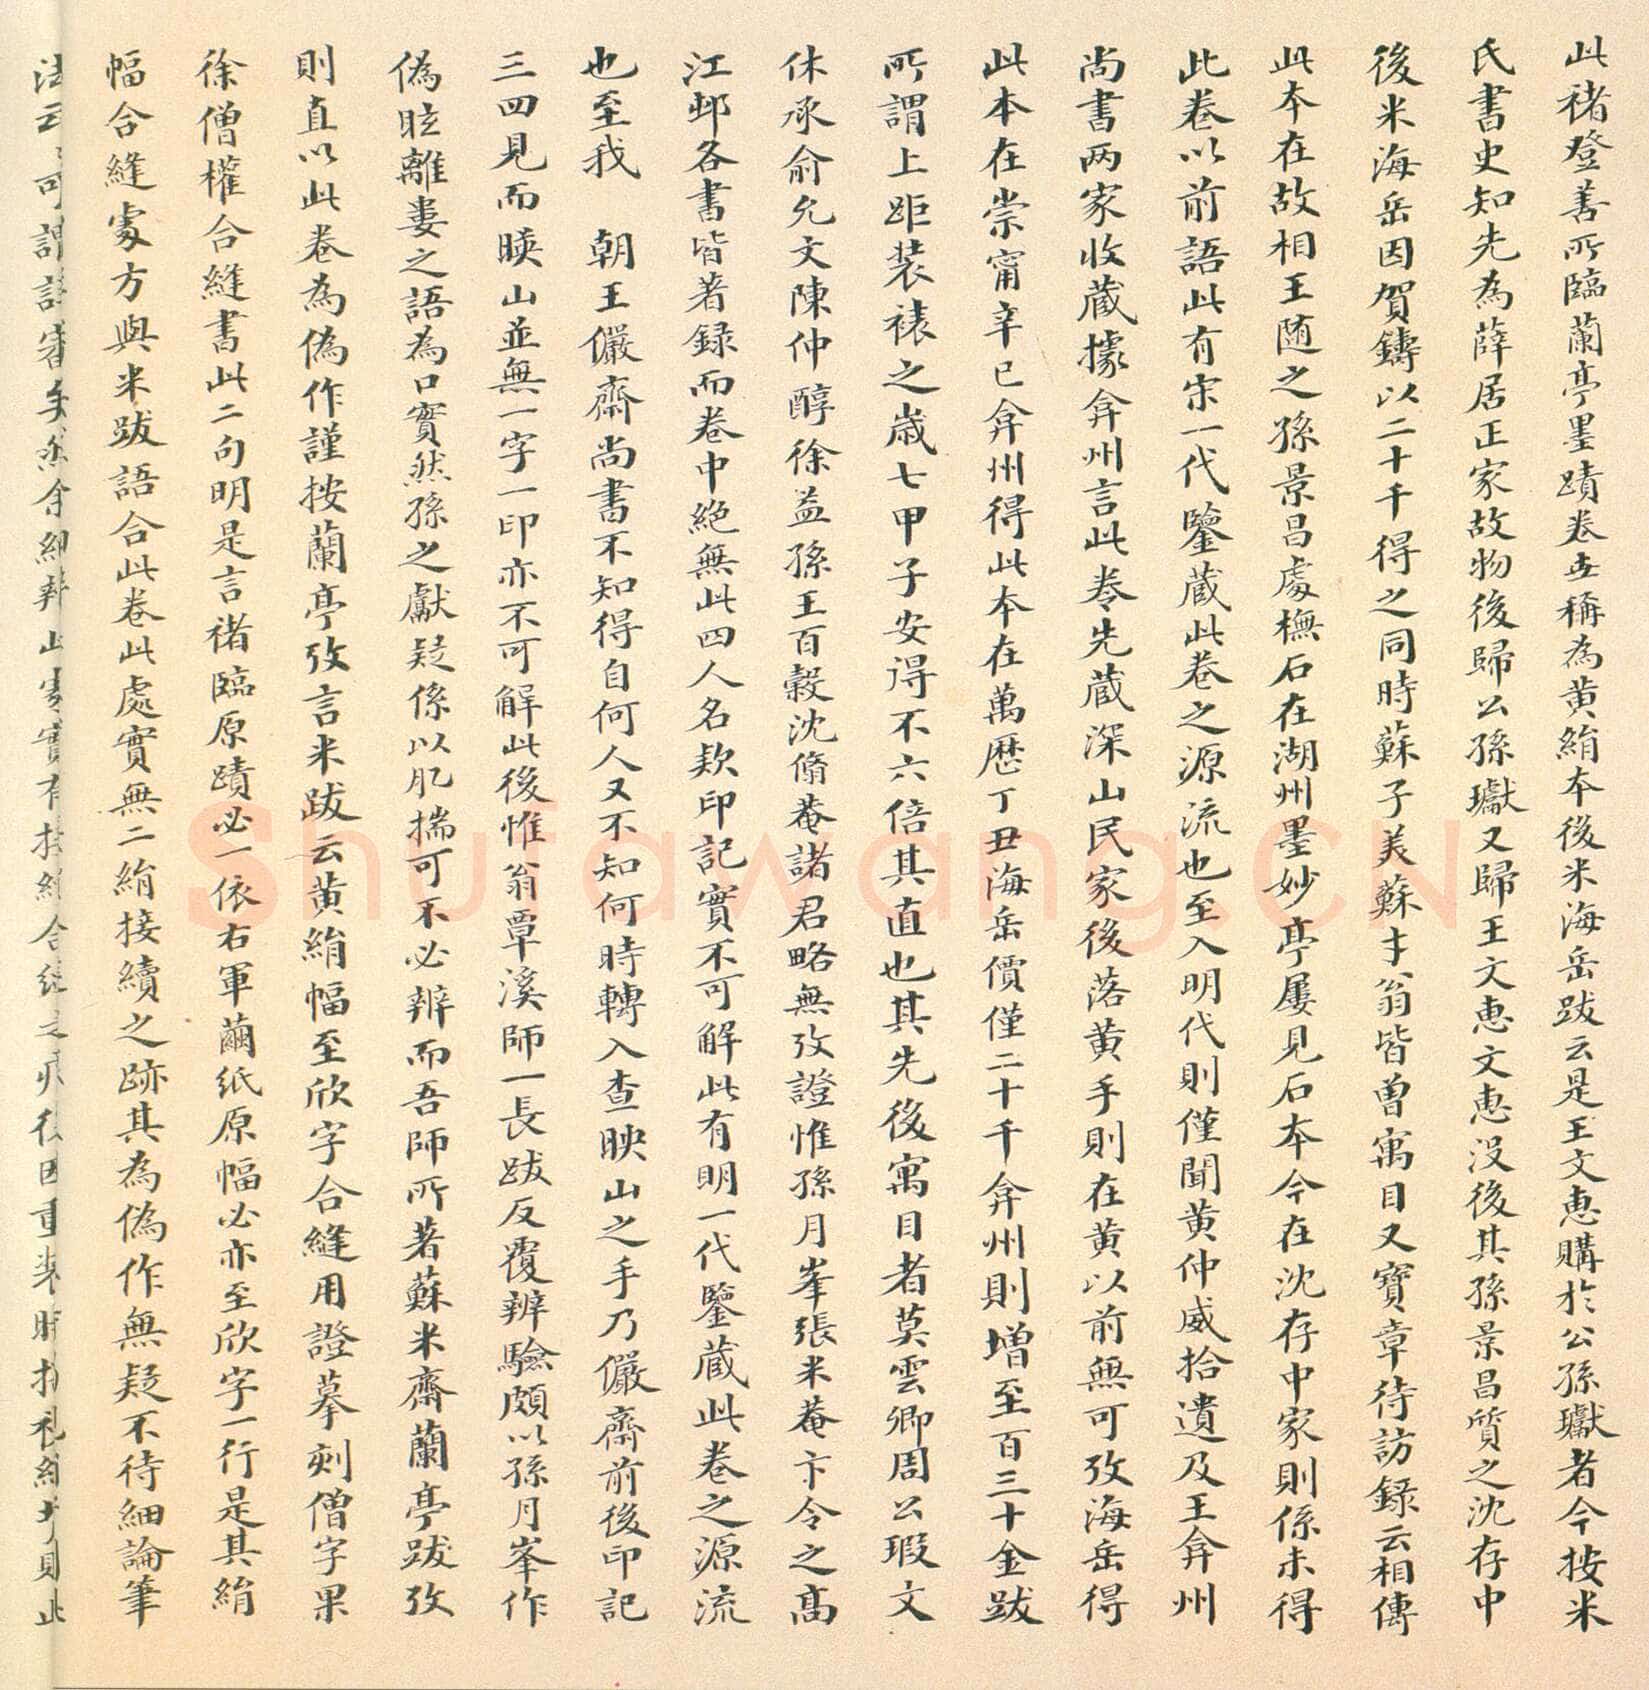 此褚登善所臨蘭亭墨蹟卷世稱為黄絹本後米海岳跋云是王文惠購於公孫瓛者今按米
氏書史知先為薛居正家故物後歸公孫瓛又歸王文惠文惠没後其孫景昌質之沈存中
後米海岳因賀鑄以二十千得之同時蘇子美蘇才翁皆曽寓目又寶章待訪録云相傳
此本在故相王随之孫景昌處橅石在湖州墨妙亭屢見石本今在沈存中家則係未得
此卷以前語此有宋一代鑒藏此卷之源流也至入明代則僅聞黄仲威拾遺及王弇州
尚書两家收藏據弇州言此卷先藏深山民家後落黄手則在黄以前無可攷海岳得
此本在崇甯辛巳弇州得此本在萬歷丁丑海岳價僅二十千弇州則增至百三十金跋
所謂上距装裱之歳七甲子安得不六倍其直也其先後寓目者莫雲卿周公瑕文
休承俞允文陳仲醇徐益孫王百榖沈脩菴諸君略無攷證惟孫月峯張米菴卞令之高
江邨各書皆著録而卷中絶無此四人名款印記實不可解此有明一代鑒藏此卷之源流
也至我 朝王儼齋尚書不知得自何人又不知何時轉入查映山之手乃儼齋前後印記
三四見而暎山並無一字一印亦不可解此後惟翁覃溪師一長跋反覆辨驗頗以孫月峯作
偽眩離婁之語為口實然孫之獻疑係以肊揣可不必辨而吾師所著蘇米齋蘭亭跋攷
則直以此卷為偽作謹按蘭亭攷言米跋云黄絹幅至欣字合縫用證摹刻僧字果
徐僧權合縫書此二句明是言褚臨原蹟必一依右軍繭紙原幅必亦至欣字一行是其絹
幅合縫處方與米跋語合此卷此處實無二絹接續之跡其為偽作無疑不待細論筆
法云云可謂詳審矣然余細辨此處實有接絹合縫之痕